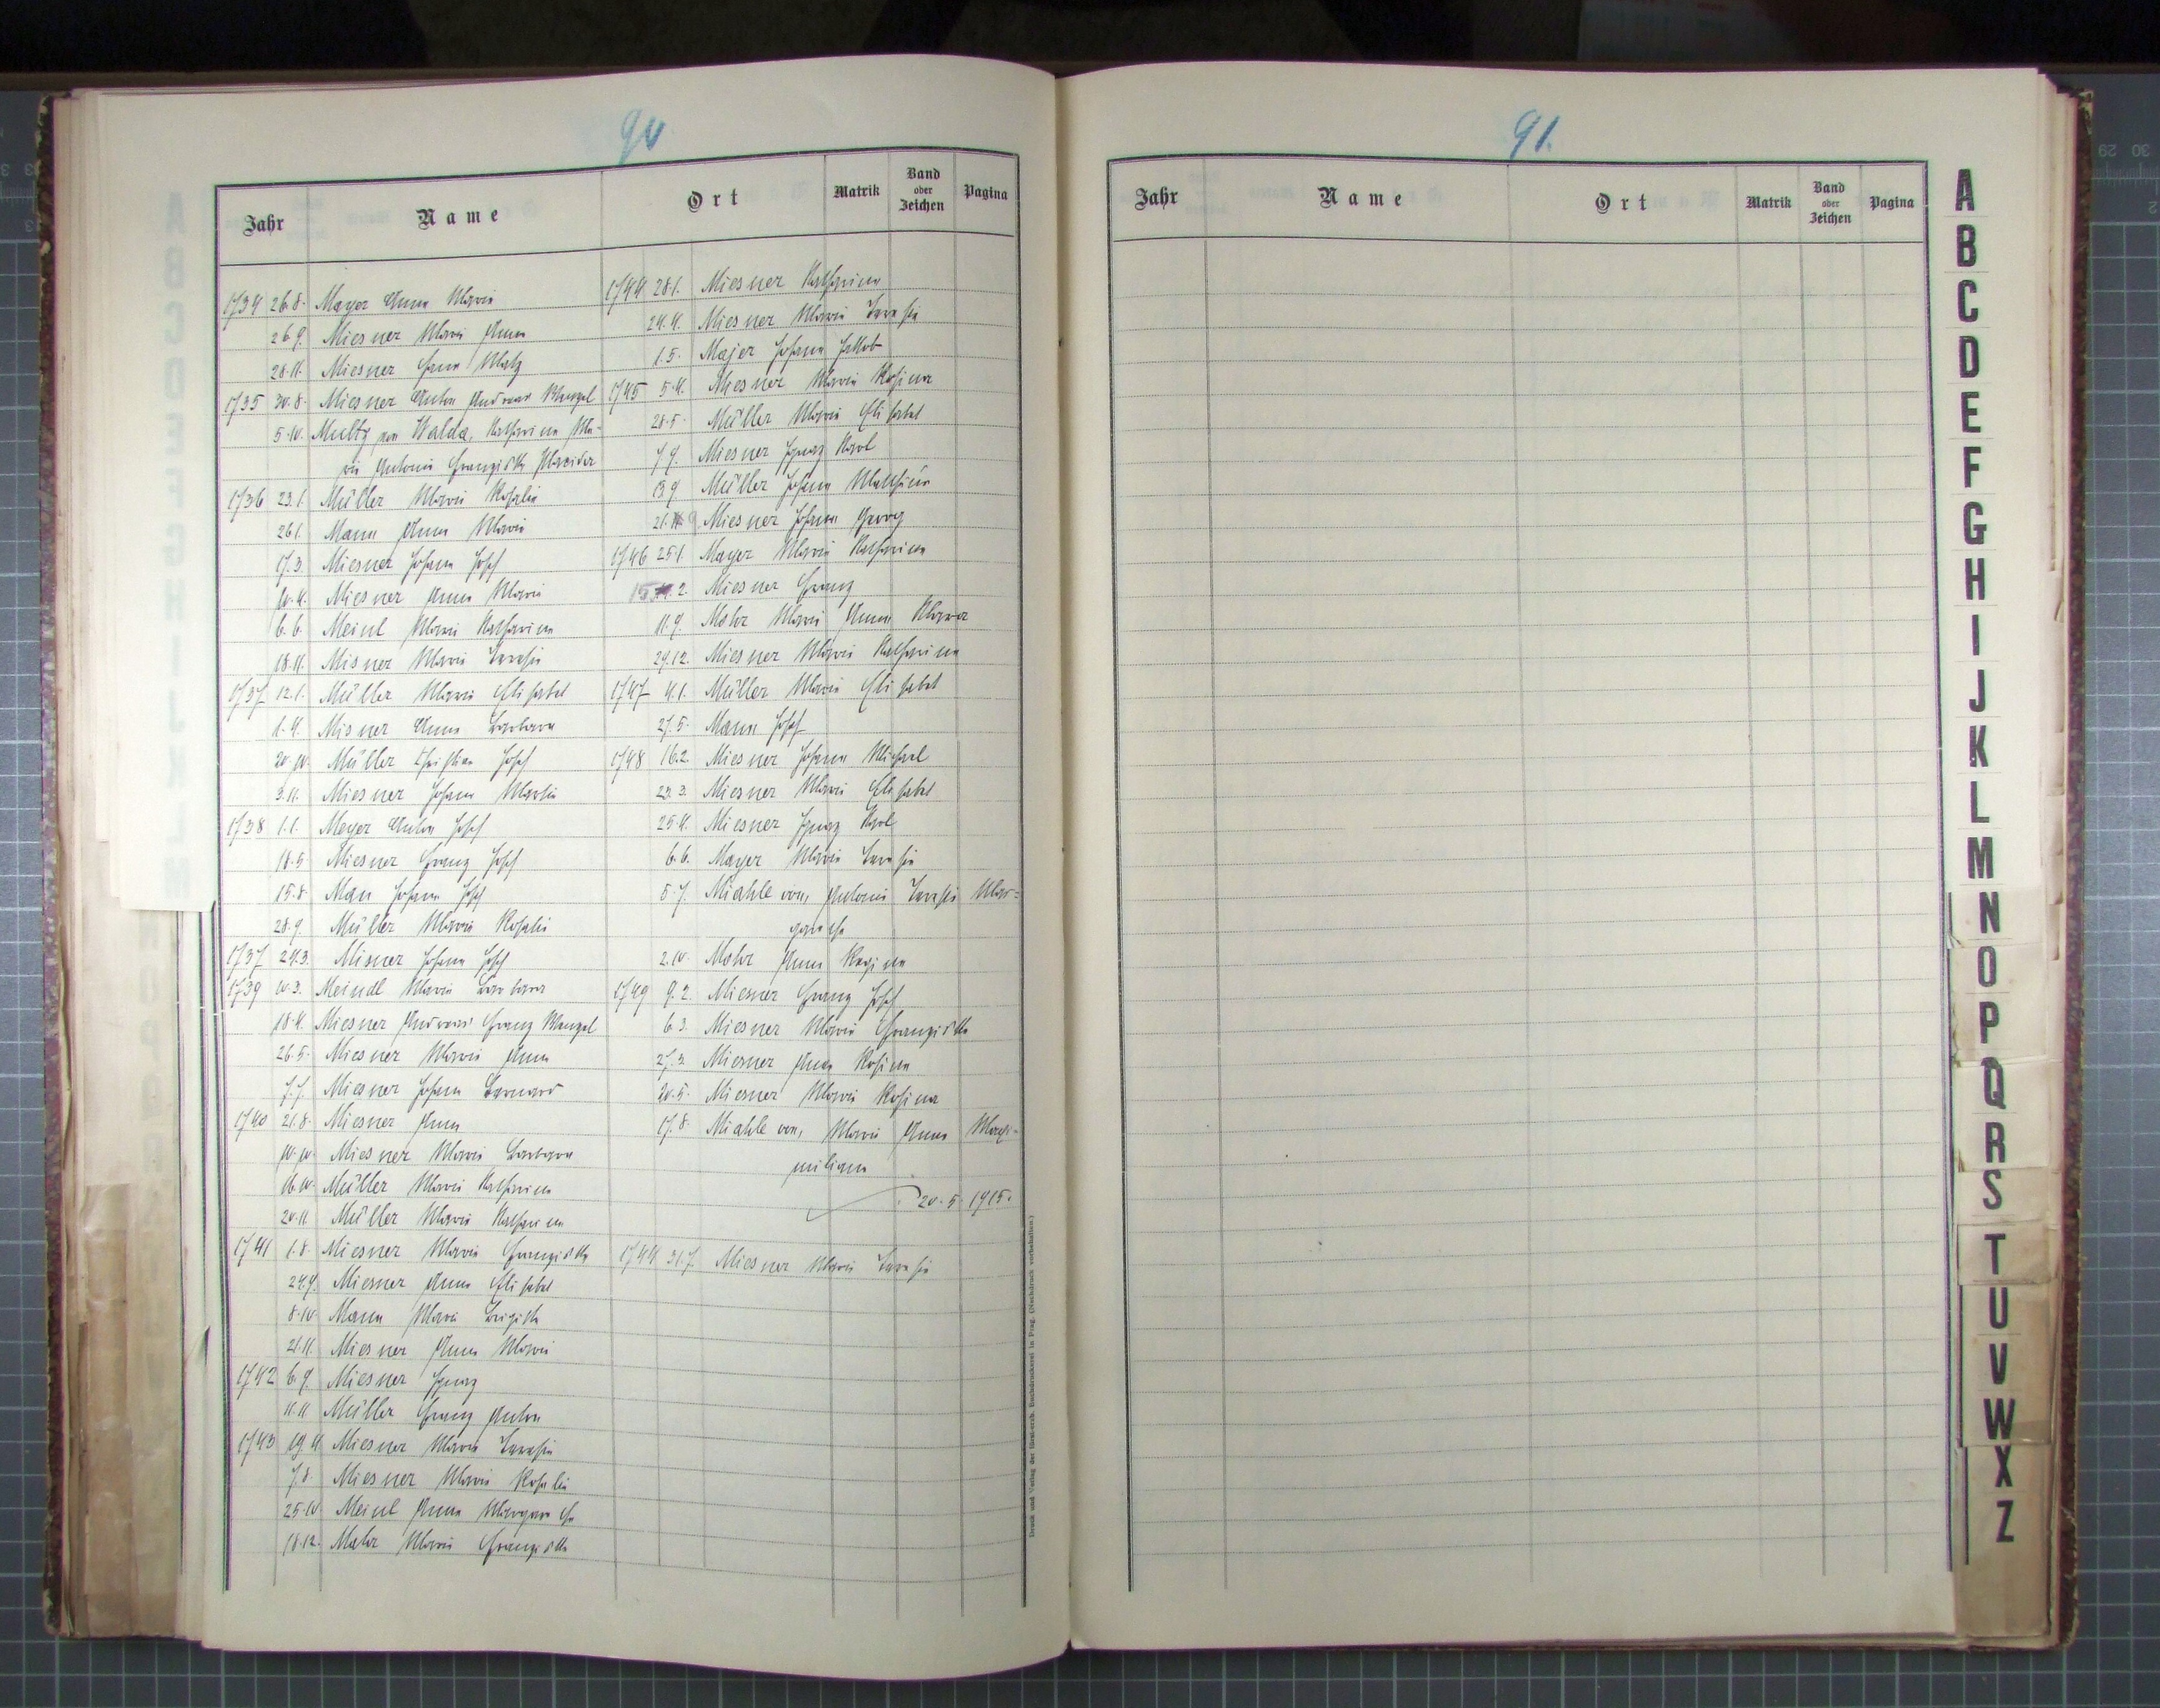 90
Jahr Name Ort Matrik Band oder Zeichen Pagina
1734 26.8. Mayer Anna Maria
26.9. Miesner Maria Anna
28.11. Miesner Hans
1735 30.8. Miesner Anton Andreas Wenzel
5.10. Multz von Walda, Katharina Ma-
ria Antonia Franziska Placida
1736 23.1. Müller Maria Rosalia
26.1. Mann Anna Maria
17.3. Miesner Johann Josef
10.4. Miesner Anna Maria
6.6. Meinl Maria Katharina
18.11. Misner Maria Teresia
1737 12.1. Müller Maria Elisabet
1.4. Misner Anna Barbara
20.10. Müller Christian Josef
3.11. Miesner Johann Martin
1738 1.1. Meyer Anton Josef
18.5. Miesner Franz Josef
15.8. Man Johann Josef
28.9. Müller Maria Rosalia
1737 24.3. Misner Johann Josef
1739 10.3. Meindl Maria Barbara
18.4. Miesner Andreas Franz Wenzel
26.5. Miesner Maria Anna
7.7. Miesner Johann Bernard
1740 21.8. Miesner Anna
10.10. Miesner Maria Barbara
16.10. Müller Maria Katharina
20.11. Müller Maria Katharina
1741 1.8. Miesner Maria Franziska
24.9. Miesner Anna Elisabet
8.10. Mann Maria Brigitta
21.11. Miesner Anna Maria
1742 6.9. Miesner Ignaz
11.11. Müller Franz Anton
1743 19.4. Miesner Maria Teresia
7.8. Miesner Maria Rosalia
25.10. Meinl Anna Margareta
18.12. Mahr Maria Franziska
1744 28.1. Miesner Katharina
24.4. Miesner Maria Teresia
1.5. Majer Johann Jakob
1745 5.4. Miesner Maria Rosina
28.5. Müller Maria Elisabet
7.9. Miesner Ignaz Karl
13.9. Müller Johann Matthäus
21. 9. Miesner Johann Georg
1746 25.1. Mayer Maria Katharina
15. 2. Miesner Franz
11.9. Mohr Maria Anna Klara
29.12. Miesner Maria Katharina
1747 4.1. Müller Maria Elisabet
27.5. Mann Josef
1748 16.2. Miesner Johann Michael
23.3. Miesner Maria Elisabet
25.4. Miesner Ignaz Karl
6.6. Mayer Maria Teresia
5.7. Miahle von, Antonia Teresia Mar=
gareta
2.10. Mohr Anna Regina
1749 9.2. Miesner Franz Josef
6.3. Miesner Maria Franziska
27.3. Miesner Anna Rosina
20.5. Miesner Maria Rosina
17.8. Miahle von, Maria Anna Maxi-
miliana
20.5.1915.
1744 31.7. Miesner Maria Teresia
Druck und Verlag der fürst-erzb. Buchdruckerei in Prag. (Nachdruck vorbehalten.)
91.
Jahr Name Ort Matrik Band oder Zeichen Pagina
A
B
C
D
E
F
G
H
I
J
K
L
M
N
O
P
Q
R
S
T
U
V
W
X
Z